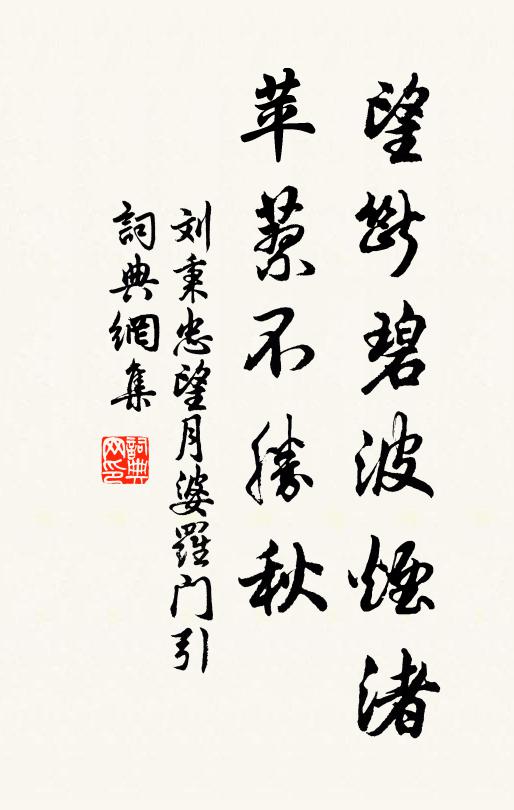 望断碧波煙渚
苹蓼不勝秋
刘秉忠望月婆羅门引
詞典網集
詞典网印